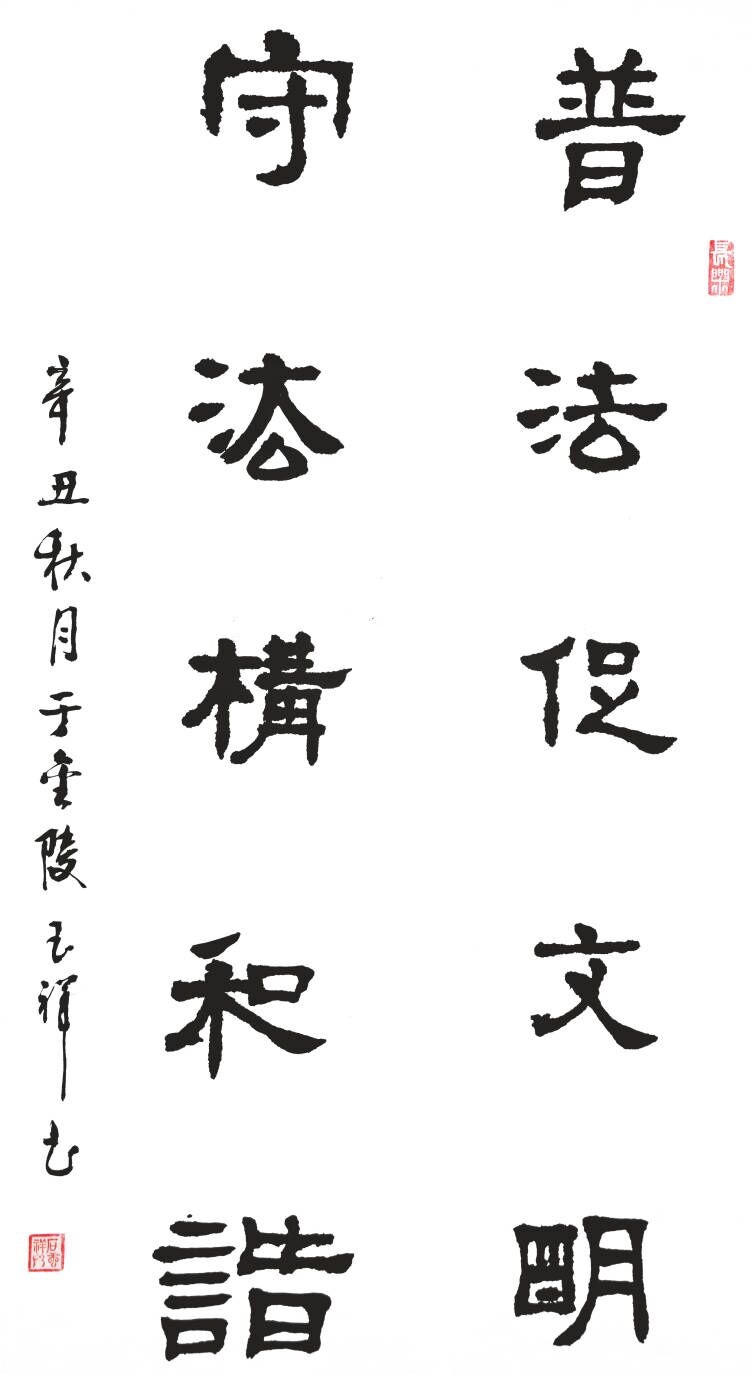 普法促文明
守法構和諧
辛丑秋月于金陵玉祥书